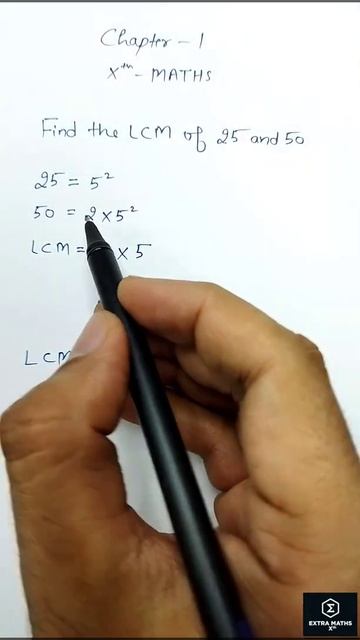 Chapter - 1
Xth - MATHS
Find the LCM of 25 and 50
25 = 5²
50 = 2 × 5²
LCM = × 5
LCM
EXTRA MATHS
Xth